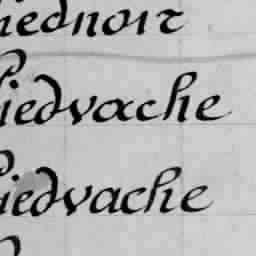 iednoir
Piedvache
Piedvache